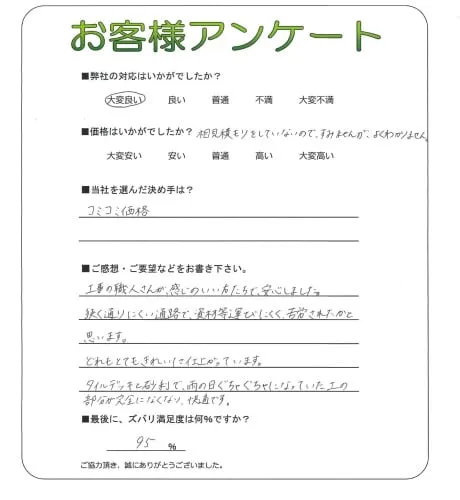 お客様アンケート
■弊社の対応はいかがでしたか？
大変良い 良い 普通 不満 大変不満
■価格はいかがでしたか？ 相見積もりをしていないので、すみませんが、よくわかりません。
大変安い 安い 普通 高い 大変高い
■当社を選んだ決め手は？
コミコミ価格
■ご感想・ご要望などをお書き下さい。
工事の職人さんが、感じのいい方たちで、安心しました。
狭く通りにくい通路で、資材等運びにくく、苦労されたかと
思います。
どれもとてもきれいに仕上がっています。
タイルデッキと砂利で、雨の日ぐちゃぐちゃになっていた土の
部分が完全になくなり、快適です。
■最後に、ズバリ満足度は何%ですか？
95 %
ご協力頂き、誠にありがとうございました。